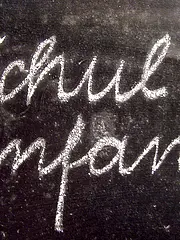 chul
nfan